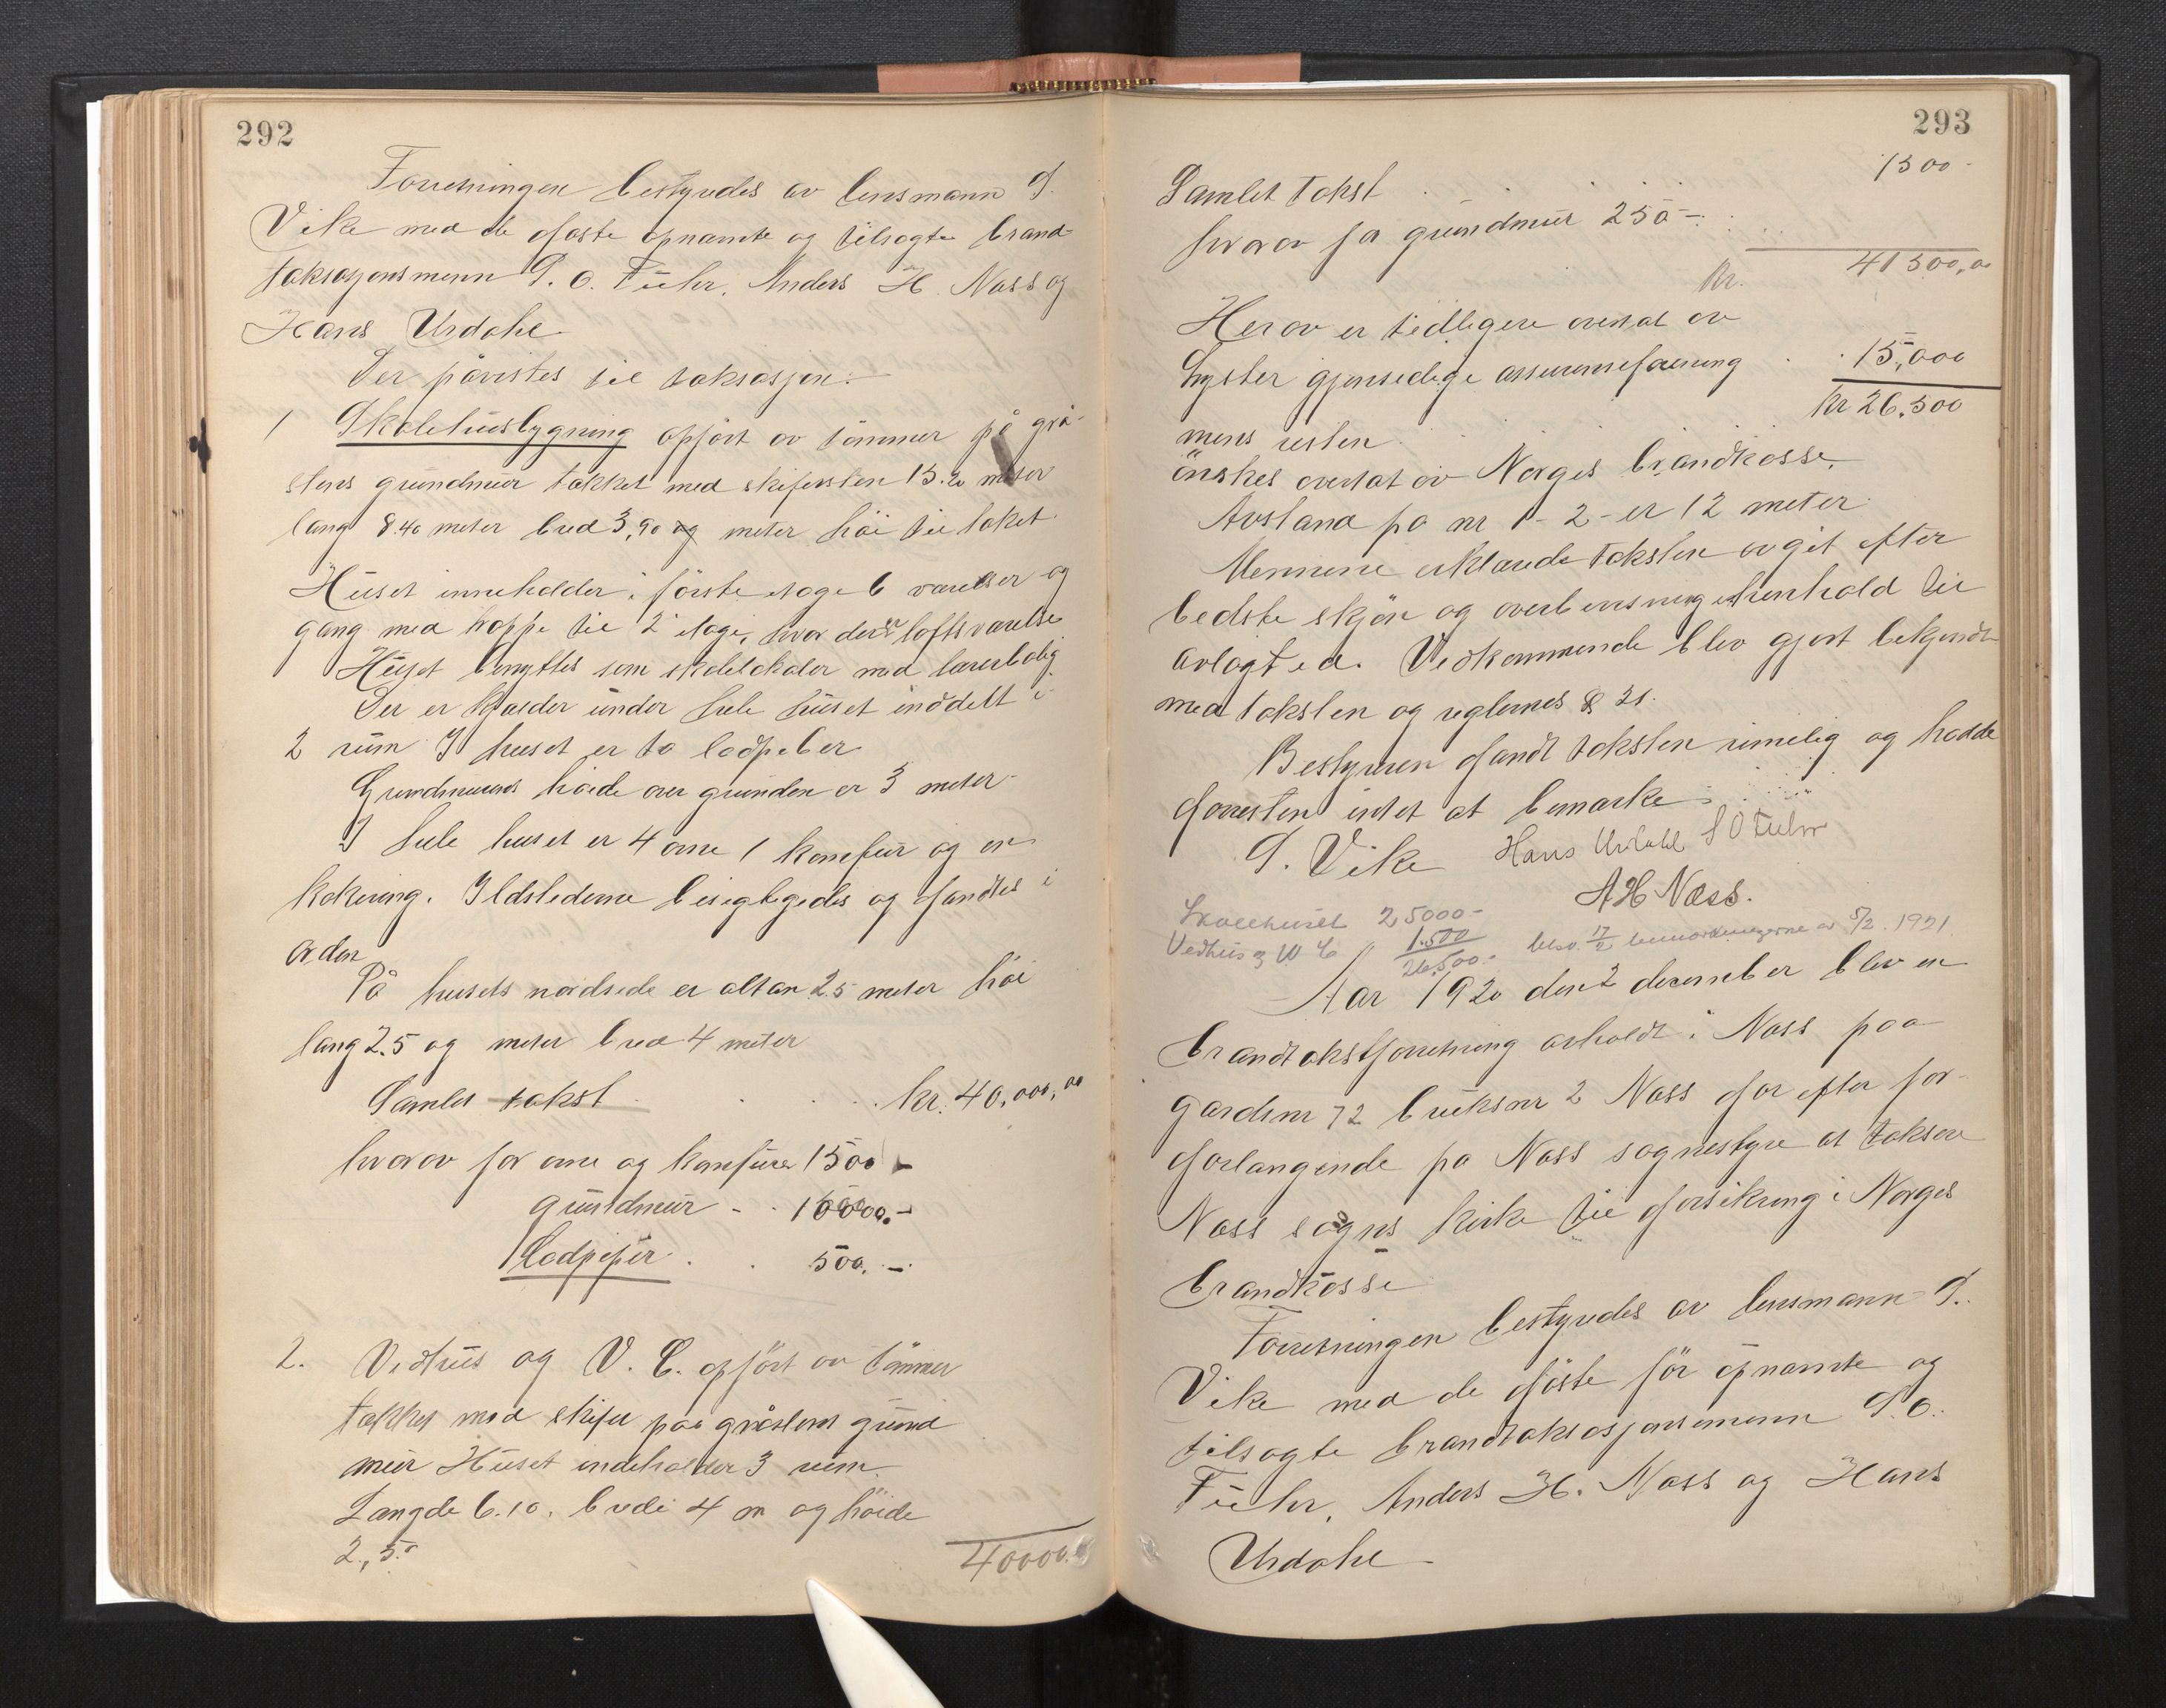 292
Forretningen bestyredes av lensmann S.
Vike med de faste opnæmte og tilsagte brand-
taksasjonsmenn S. O. Fuhr, Anders H. Næss og
Hans Urdahl
Der påvistes til taksasjon:
1 Skolehusbygning opført av tømmer på grå-
stens grundmur tækket med skifersten 13.20 meter
lang 8.40 meter bred 3,90 og meter høi til taket
Huset inneholder i første etage 6 værelser og
gang med trappe til 2 etage, hvor der er loftsværelse
Huset benyttes som skolelokaler med lærerbolig
Der er kjælder under hele huset inddelt i
2 rum I huset er to lodpiber
Grundmurens høide over grunden er 3 meter
I hele huset er 4 ovne 1 komfur og en
kokering. Ildstederne besigtigedes og fandtes i
orden
På husets nordside er altan 2.5 meter høi
lang 2.5 og meter bred 4 meter
Samlet takst . . . kr. 40,000,00
hvorav for ovne og komfurer 1500 -
grundmur - . 10000.-
lodpiper . . 500. -.
2. Vedhus og V. C. opført av tømmer
tækket med skifer paa gråstens grund
mur Huset indeholder 3 rum.
Længde 6.10. brede 4 m og høide
2,50
40000.
293
Samlet takst . . . . 1500-
hvorav for grundmur 250 -
kr. 41500,00
Herav er tidligere overtat av
Lyster gjensidige assuranseforening . . 15,000
mens resten . . . kr 26,500
ønskes overtat av Norges brandkasse.
Avstand fra nr 1 - 2 - er 12 meter
Mennene erklærede taksten avgit efter
bedste skjøn og overbevisning i henhold til
avlagt ed. Vedkommende blev gjort bekjendt
med taksten og reglernes § 31.
Bestyreren fandt taksten rimelig og hadde
forresten intet at bemærke
S. Vike Hans Urdahl S O Fuhr
A H Næss.
Skolehuset 25000-
Vedhus og W C " 1.500 besv. 17/2 bemerkningerne av 5/2. 1921.
26,500.-
Aar 1920 den 2 december blev en
brandtakstforretning avholdt i Næss paa
gardsnr 72 bruksnr 2 Næss for efter for-
forlangende fra Næss sognestyre at taksere
Næss sogns kirke til forsikring i Norges
brandkasse
Forretningen bestyredes av lensmann S.
Vike med de faste før opnæmte og
tilsagte brandtaksasjonsmenn S. O.
Fuhr, Anders H. Næss og Hans
Urdahl